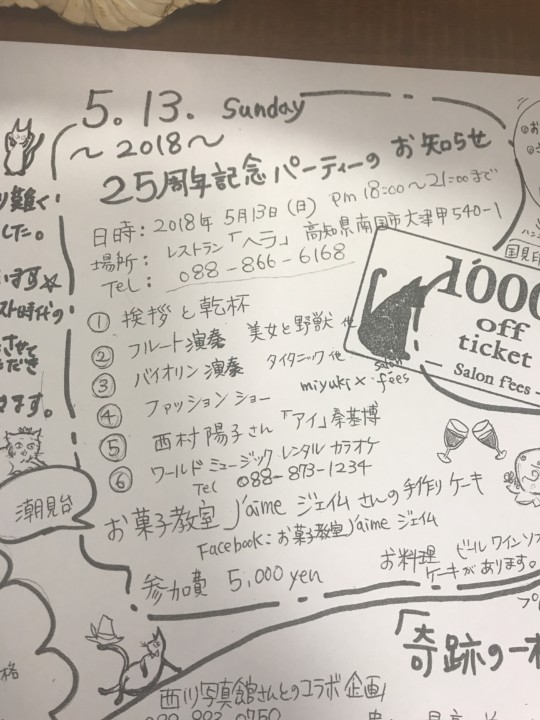 5. 13. Sunday
～ 2018 ～
25周年記念パーティーの お知らせ
日時： 2018年 5月13日（日） PM 18:00～21:00まで
場所： レストラン「ヘラ」 高知県南国市大津甲540-1
Tel： 088-866-6168
① 挨拶と乾杯
② フルート演奏 美女と野獣 他
③ バイオリン演奏 タイタニック他
④ ファッションショー miyuki × salon fées
⑤ 西村陽子さん 「アイ」秦基博
⑥ ワールド ミュージック レンタル カラオケ
Tel 088-873-1234
お菓子教室 J'aime ジェイム さんの手作り ケーキ
Facebook: お菓子教室J'aime ジェイム
お料理 ビール ワイン ソフ
ケーキがあります。
参加費 5,000 yen
1000
off
ticket
Salon fees
難く
した。
います☆
スト時代の
させて
ただき
ます。
潮見台
格
国見
「奇跡の一
西川写真館さんとのコラボ企画